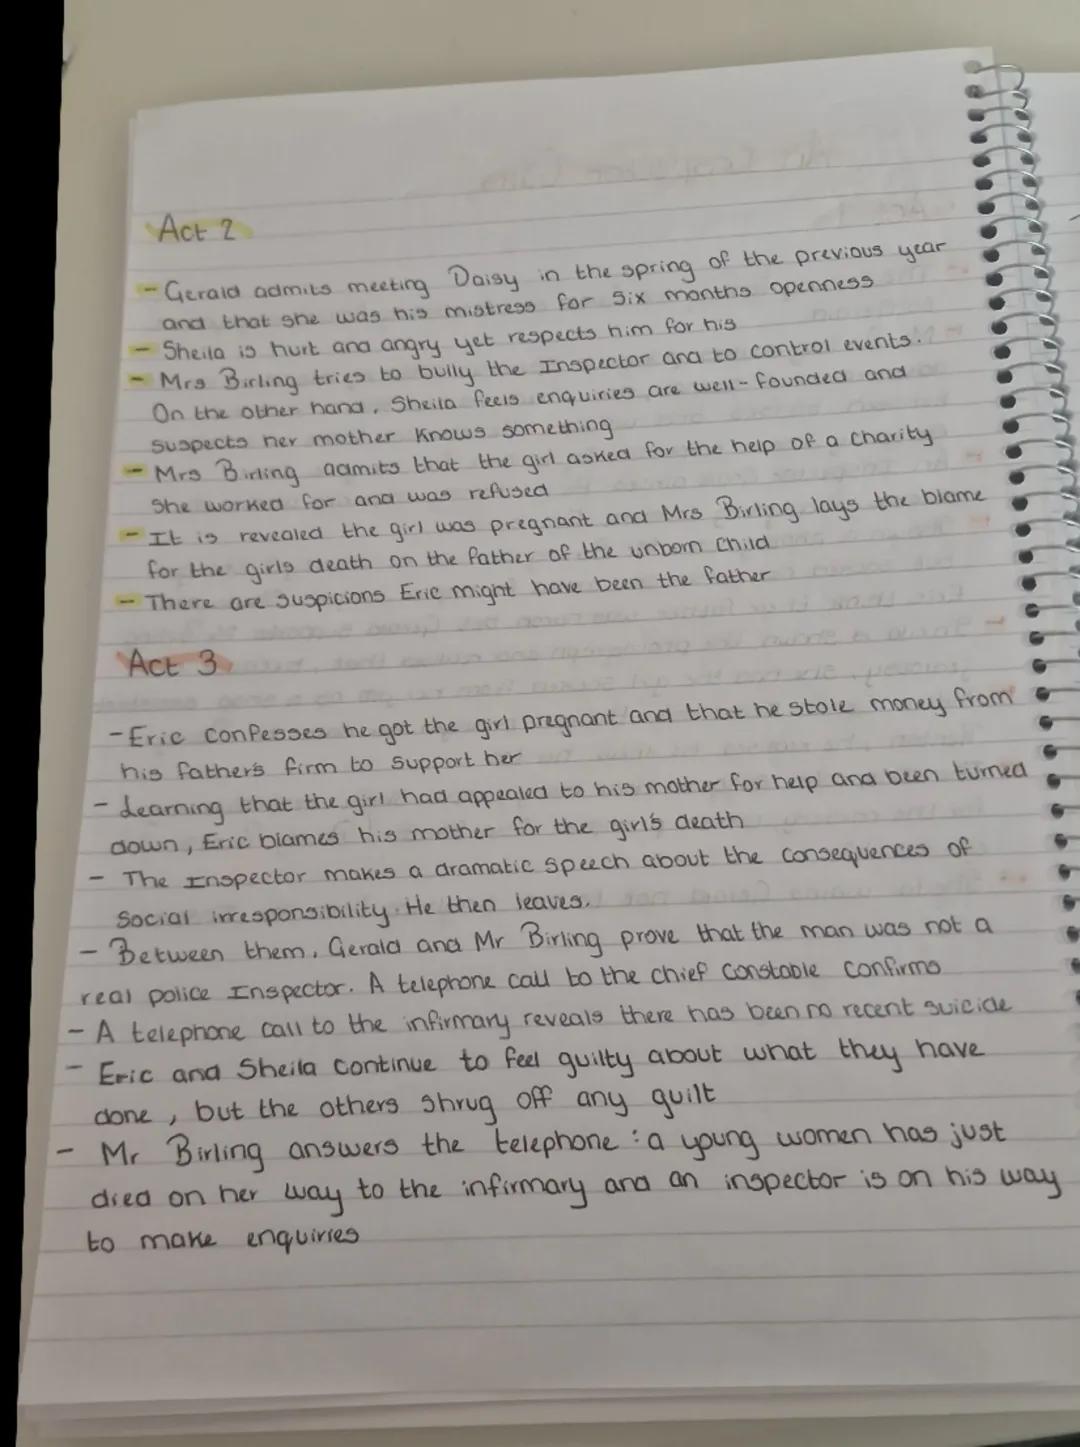 Act 2
- Gerald admits meeting Daisy in the spring of the previous year
and that she was his mistress for six months
- Sheila is hurt and angry yet respects him for his openness
- Mrs Birling tries to bully the Inspector and to control events.
On the other hand, Sheila feels enquiries are well-founded and
suspects her mother knows something
- Mrs Birling admits that the girl asked for the help of a charity
she worked for and was refused
- It is revealed the girl was pregnant and Mrs Birling lays the blame
for the girls death on the father of the unborn child
- There are suspicions Eric might have been the father
Act 3
- Eric confesses he got the girl pregnant and that he stole money from
his father's firm to support her
- Learning that the girl had appealed to his mother for help and been turned
down, Eric blames his mother for the girl's death
- The Inspector makes a dramatic speech about the consequences of
social irresponsibility. He then leaves.
- Between them, Gerald and Mr Birling prove that the man was not a
real police Inspector. A telephone call to the chief constable confirms
- A telephone call to the infirmary reveals there has been no recent suicide
- Eric and Sheila continue to feel guilty about what they have
done, but the others shrug off any guilt
- Mr Birling answers the telephone: a young women has just
died on her way to the infirmary and an inspector is on his way
to make enquiries